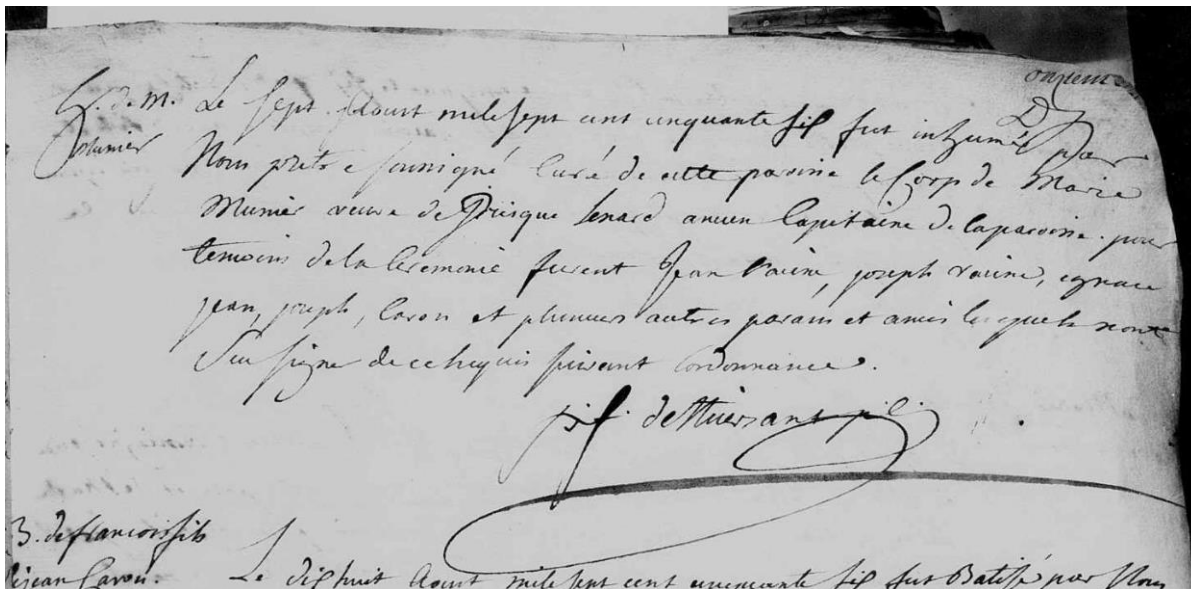 onziem
S. de M. Le sept Aoust mile sept cent cinquante six fut inhumé par
Munier Nous pretre sousigné Curé de cette paroisse le Corp de Marie
Munier veuve de Prisque Lenard ancien Capitaine de la paroisse. pour
temoins de la Ceremonie furent Jean racine, joseph racine, ignace
jean, joseph, Caron et plusieurs autres parans et amis lesquels nont
Sceu signe de ce requis suivant lordonnance.
deThiersant
B. de francois fils
de jean Caron. Le dix huit Aoust mile sept cent cinquante six fut Batisé par Nous